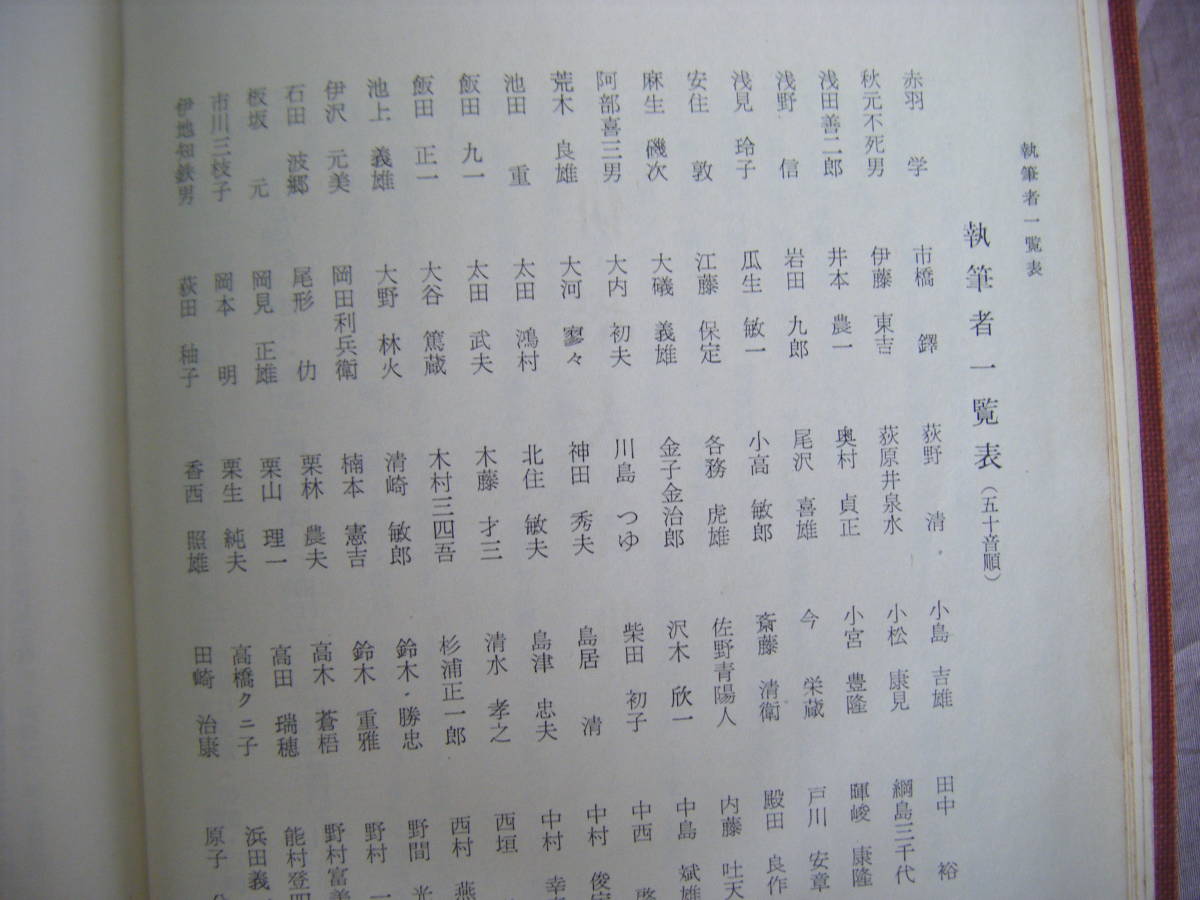 執筆者一覧表
執筆者一覧表(五十音順)
赤羽 学
秋元不死男
浅田善二郎
浅野 信
浅見 玲子
安住 敦
麻生 磯次
阿部喜三男
荒木 良雄
池田 重
飯田 九一
飯田 正一
池上 義雄
伊沢 元美
石田 波郷
板坂 元
市川三枝子
伊地知鉄男
市橋 鐸
伊藤 東吉
井本 農一
岩田 九郎
瓜生 敏一
江藤 保定
大礒 義雄
大内 初夫
大河 寥々
太田 鴻村
太田 武夫
大谷 篤蔵
大野 林火
岡田利兵衛
尾形 仂
岡見 正雄
岡本 明
荻田 秞子
荻野 清
荻原井泉水
奥村 貞正
尾沢 喜雄
小高 敏郎
各務 虎雄
金子金治郎
川島 つゆ
神田 秀夫
北住 敏夫
木藤 才三
木村三四吾
清崎 敏郎
楠本 憲吉
栗林 農夫
栗山 理一
栗生 純夫
香西 照雄
小島 吉雄
小松 康見
小宮 豊隆
今 栄蔵
斎藤 清衛
佐野青陽人
沢木 欣一
柴田 初子
島居 清
島津 忠夫
清水 孝之
杉浦正一郎
鈴木 勝忠
鈴木 重雅
高木 蒼梧
高田 瑞穂
高橋クニ子
田崎 治康
田中 裕
綱島三千代
暉峻 康隆
戸川 安章
殿田 良作
内藤 吐天
中島 斌雄
中西
中村 俊
中村 幸
西垣
西村 燕
野間 光
野村 一
野村富美
能村登四
浜田義
原子